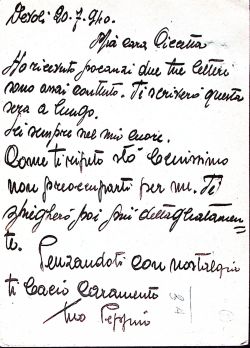 20-7-940.
Mia cara Cicetta
Ho ricevuto pocanzi due tue lettere
sono assai contento. Ti scriverò questa
sera a lungo.
Sei sempre nel mio cuore.
Come ti ripeto stò benissimo
non preoccuparti per me. Ti
spiegherò poi più dettagliatamen-
te.
Penzandoti con nostalgia
ti bacio caramente
tuo Peppino